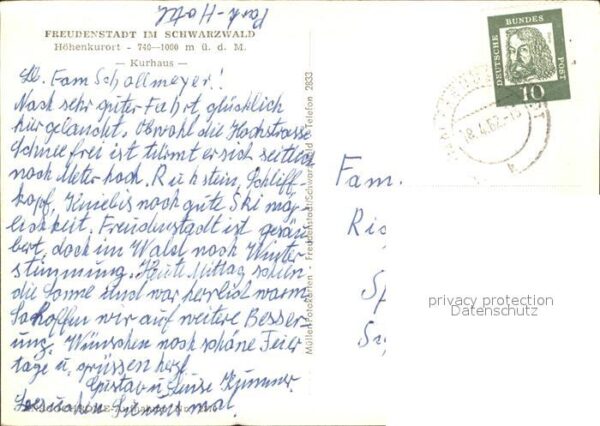 Park-Hotel
FREUDENSTADT IM SCHWARZWALD
Höhenkurort - 740—1000 m ü. d. M.
— Kurhaus —
Fam Schollmeyer!
Nach sehr guter Fahrt glücklich
hier gelandet. Obwohl die Hochstrasse
Schneefrei ist türmt er sich seitlich
noch Meter hoch. Ruhstein, Schliff-
kopf, Kniebis noch gute Ski mög-
lichkeit. Freudenstadt ist geräu-
bert, doch im Wald noch Winter
stimmung. Heute Mittag schien
die Sonne und war herrlich warm
So hoffen wir auf weitere Besser-
ung. Wünschen noch schöne Feier
tage u. grüssen herzl.
Gustav u. Luise Kummer.
mal.
Müller-Fotokarten - Freudenstadt/Schwarzwald - Telefon 2833
DEUTSCHE BUNDESPOST
10
18.4.62
Fam.
Ri
Sp
privacy protection
Datenschutz